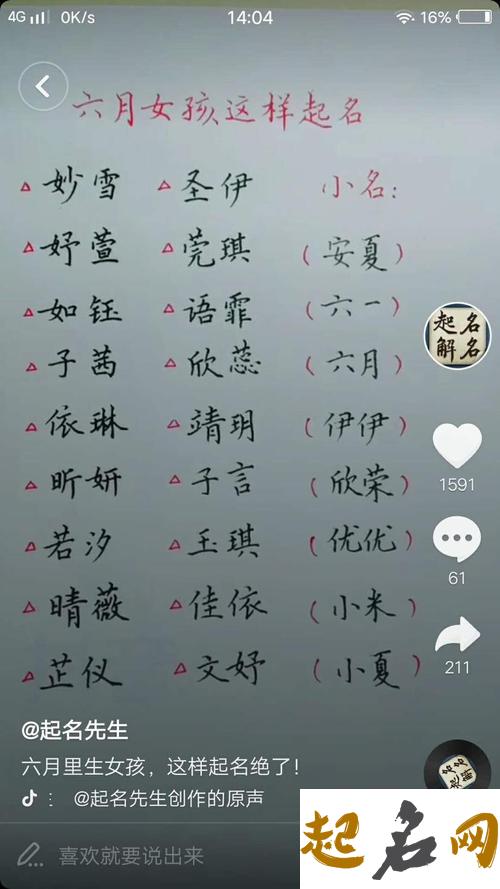 4G 0K/s 14:04 16%
六月女孩这样起名
△妙雪 △圣伊 小名：
△妤萱 △莞琪 （安夏）
△如钰 △语霏 （六一）
△子茜 △欣蕊 （六月）
△依琳 △靖玥 （伊伊）
△昕妍 △子言 （欣荣）
△若汐 △玉琪 （优优）
△晴薇 △佳依 （小米）
△芷仪 △文妤 （小夏）
起名
解名
1591
61
211
@起名先生
六月里生女孩，这样起名绝了！
： @起名先生创作的原声
喜欢就要说出来
起名网